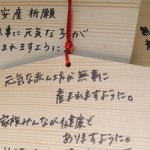 安産祈願
無事に元気な子が
生まれますように。
元気な赤ん坊が無事に
産まれますように。
家族みんなが健康で
ありますように。